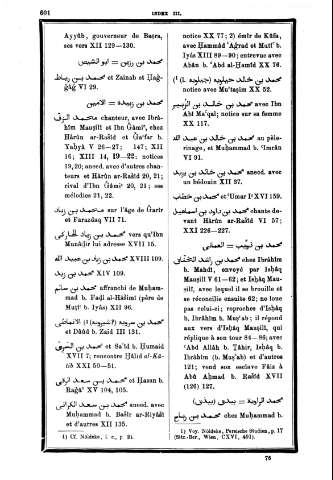 601
INDEX III.
Ayyûb, gouverneur de Baṣra,
ses vers XII 129—130.
محمد بن رزين = ابو الشيص
محمد بن et Zainab et Ḥaǧ-
ǧâǧ VI 29.
محمد بن زبيدة = الامين
محمد الزف chanteur, avec Ibrâ-
hîm Mauṣilî et Ibn Ǧâmiʿ, chez
Hârûn ar-Raśîd et Ǧaʿfar b.
Yaḥyâ V 26—27; 147; XII
16; XIII 14, 19—22; notices
19,20; anecd. avec d'autres chan-
teurs et Hârûn ar-Raśîd 20, 21;
rival d'Ibn Ǧâmiʿ 20, 21; ses
mélodies 21, 22.
محمد بن زياد sur l'âge de Ǧarîr
et Farazdaq VII 71.
محمد بن زياد الحارثى vers qu'Ibn
Munâḏir lui adresse XVII 15.
محمد بن زيد بن عبيد الله XVIII 109.
محمد بن زيد XIV 109.
محمد بن سالم affranchi de Muḥam-
med b. Faḍl al-Hâśimî (père de
Muṭîʿ b. Iyâs) XII 96.
محمد بن
et Dâûd b. Zaid III 131.
محمد بن et Saʿîd b. Ḥumaid
XVII 7; rencontre Ḫâlid al-Kâ-
tib XXI 50—51.
محمد بن سعد et Ḥasan b.
Raǧâ XV 104, 105.
محمد بن سعد الكرانى anecd. avec
Muḥammed b. Baśîr ar-Riyâśî
et d'autres XII 135.
1) Cf. Nöldeke, l. c., p. 21.
notice XX 77; 2) émir de Kûfa,
avec Ḥammâd ʿAǧrad et Muṭîʿ b.
Iyâs XIII 89—90; entrevue avec
Abân b. ʿAbd al-Ḥamîd XX 76.
محمد بن خالد حيلويه (جيلويه) 1)
notice avec Muʿtaṣim XX 52.
محمد بن خالد بن الزبير avec Ibn
Abî Maʿqal; notice sur sa femme
XX 117.
محمد بن خالد بن عبد الله au pèle-
rinage, et Muḥammad b. ʿImrân
VI 91.
محمد بن خالد بن يزيد anecd. avec
un bédouin XII 37.
محمد بن خطاب et ʿUmar I XVI 159.
محمد بن داود بن اسمعيل chante de-
vant Hârûn ar-Raśîd VI 57;
XXI 226—227.
محمد بن ذويب = العمانى
محمد بن راشد الخناق chez Ibrâhîm
b. Mahdî, envoyé par Isḥâq
Mauṣilî V 61—62; et Isḥâq Mau-
ṣilî, avec lequel il se brouille et
se réconcilie ensuite 62; ne loue
pas celui-ci; reproches d'Isḥâq
b. Ibrâhîm b. Muṣʿab; il répond
aux vers d'Isḥâq Mauṣilî, qui
réplique à son tour 84—86; avec
ʿAbd Allâh b. Ṭâhir, Isḥâq b.
Ibrâhîm (b. Muṣʿab) et d'autres
121; vend son esclave Fâiz à
Abû Aḥmad b. Raśîd XVII
(126) 127.
محمد الراوية = بيدق (بيذق)
محمد بن رباح chez Muḥammed b.
1) Voy. Nöldeke, Persische Studien, p. 17
(Sitz.-Ber., Wien, CXVI, 401).
76